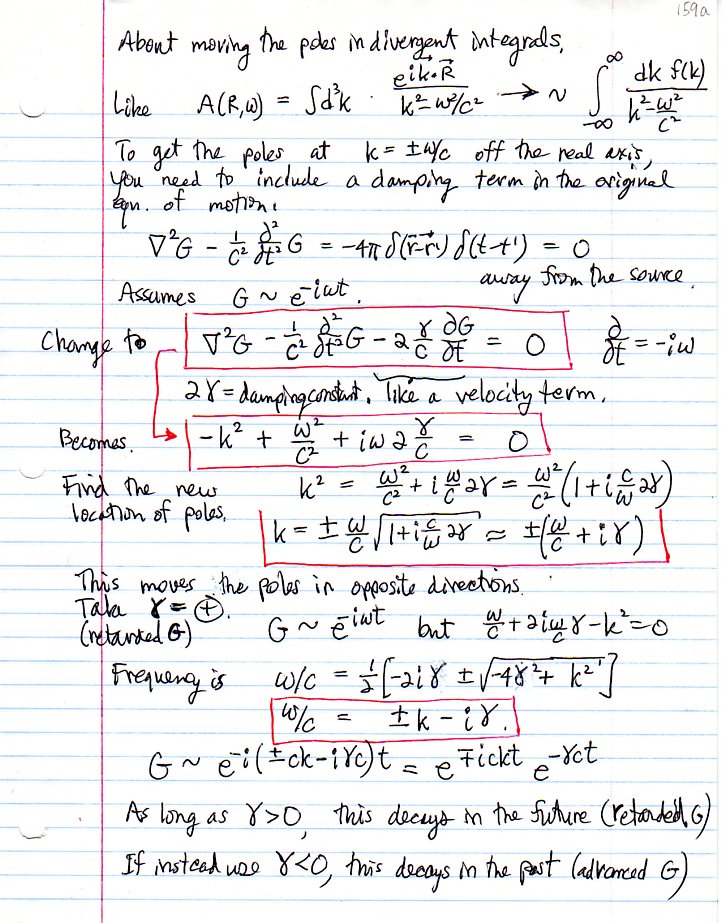 159a
About moving the poles in divergent integrals,
Like A(R,ω) = ∫d³k · e^{ik⃗·R⃗}/(k²-ω²/c²) → ~ ∫_{-∞}^{∞} dk f(k)/(k²-ω²/c²)
To get the poles at k = ±ω/c off the real axis,
you need to include a damping term in the original
eqn. of motion:
∇²G - 1/c² ∂²/∂t² G = -4π δ(r⃗-r⃗') δ(t-t') = 0
away from the source.
Assumes G ~ e^{-iωt}.
Change to ∇²G - 1/c² ∂²/∂t² G - 2 γ/c ∂G/∂t = 0 ∂/∂t = -iω
2γ = damping constant. Like a velocity term.
Becomes. -k² + ω²/c² + iω2 γ/c = 0
Find the new k² = ω²/c² + i ω/c 2γ = ω²/c² (1+i c/ω 2γ)
location of poles. k = ± ω/c √(1+i c/ω 2γ) ≈ ±(ω/c + iγ)
This moves the poles in opposite directions.
Take γ = ⊕.
(retarded G) G ~ e^{-iωt} but ω/c + 2i ω/c γ - k² = 0
Frequency is ω/c = 1/2 [-2iγ ± √(-4γ² + k²)]
ω/c = ±k - iγ.
G ~ e^{-i(±ck-iγc)t} = e^{∓ickt} e^{-γct}
As long as γ>0, this decays in the future (retarded G)
If instead use γ<0, this decays in the past (advanced G)